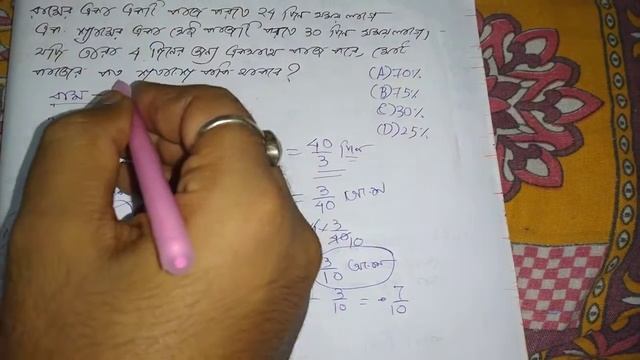 রামের একা একটি কাজ করতে 24 দিন সময় লাগে
এবং শ্যামের একা সেই কাজটি করতে 30 দিন সময় লাগে,
যদি তারা 4 দিনের জন্য একসাথে কাজ করে, মোট
কাজের কত শতাংশ বাকি থাকবে?
(A) 70%
(B) 75%
(C) 30%
(D) 25%
রাম
= 40/3 দিন
= 3/40 অংশ
3/40 10
3/10 অংশ
3/10 = 7/10